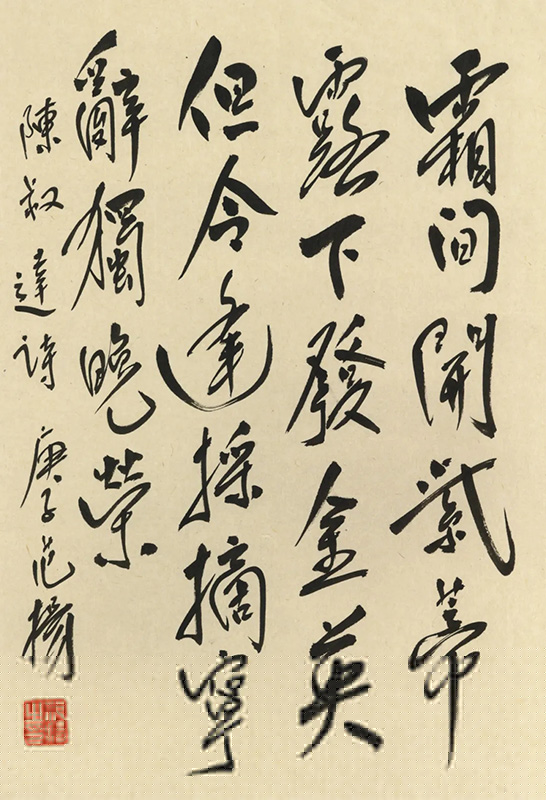 霜間開紫蒂
露下發金英
但令逢採摘寧
辭獨晚榮
陳叔達詩 庚子范揚